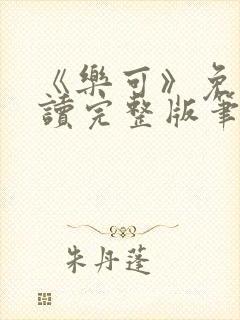 《樂可》免
讀完整版筆
朱丹蓬